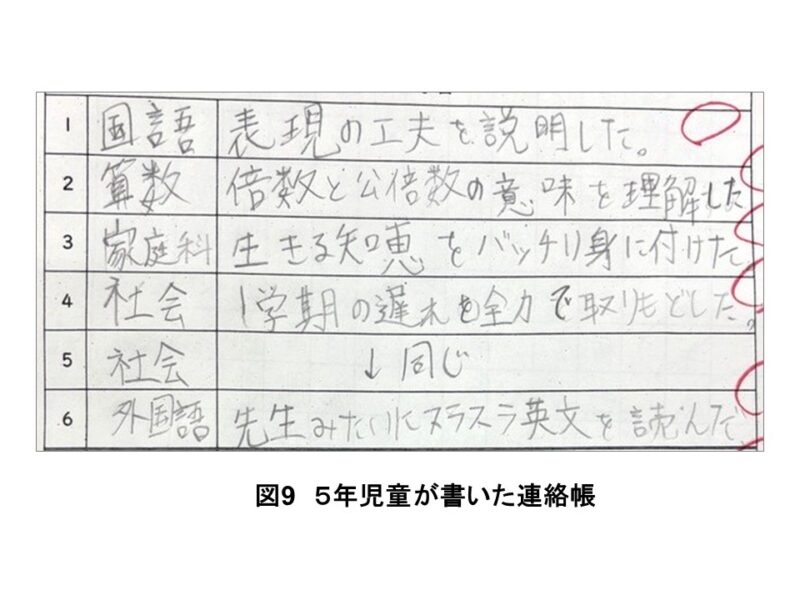 1 国語 表現の工夫を説明した。
2 算数 倍数と公倍数の意味を理解した
3 家庭科 生きる知恵をバッチリ身に付けた
4 社会 1学期の遅れを全力で取りもどした。
5 社会 ↓同じ
6 外国語 先生みたいにスラスラ英文を読んだ
図9 5年児童が書いた連絡帳